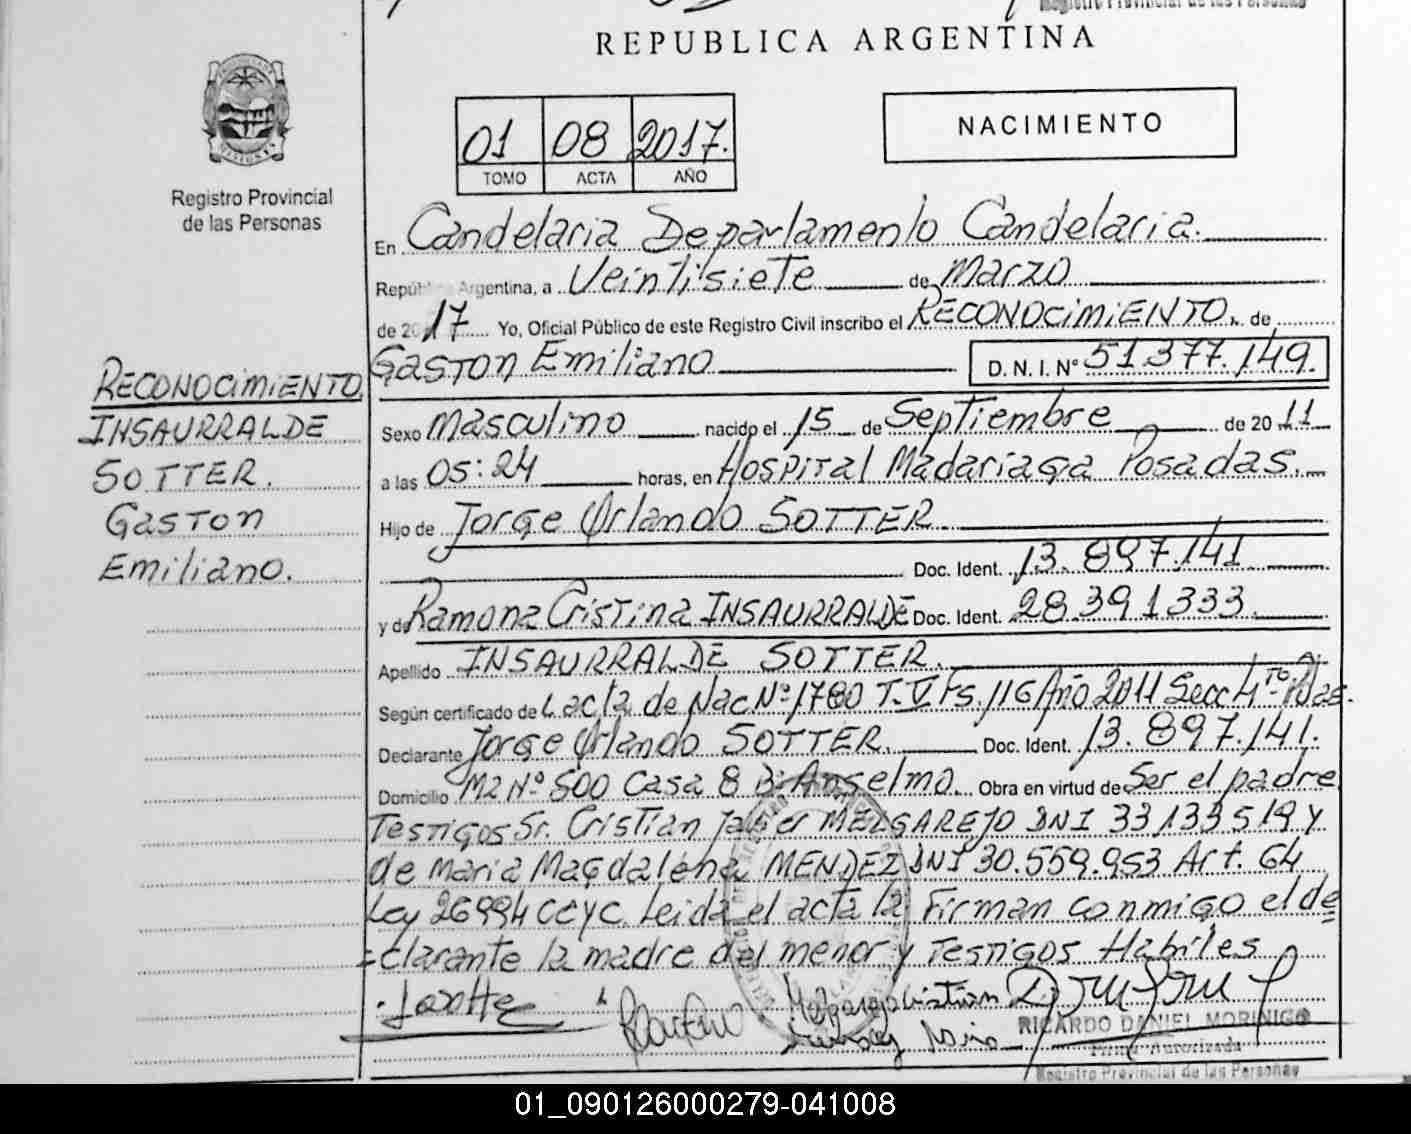 Registro Provincial de las Personas
REPUBLICA ARGENTINA
01 08 2017.
TOMO ACTA AÑO
NACIMIENTO
Registro Provincial
de las Personas
En Candelaria Departamento Candelaria.
Repúb Argentina, a Veintisiete de Marzo
de 2017 Yo, Oficial Público de este Registro Civil inscribo el RECONOCIMIENTO. de
Gaston Emiliano D. N. I. Nº 51377.149.
RECONOCIMIENTO
INSAURRALDE
SOTTER.
Gaston
Emiliano.
Sexo Masculino nacido el 15 de Septiembre de 2011
a las 05:24 horas, en Hospital Madariaga Posadas.
Hijo de Jorge Orlando SOTTER
Doc. Ident. 13.897.141
y de Ramona Cristina INSAURRALDE Doc. Ident. 28.391333.
Apellido INSAURRALDE SOTTER.
Según certificado de L acta de Nac Nº 1780 T. V Fs. 116 Año 2011 Secc 4to Pdas.
Declarante Jorge Orlando SOTTER. Doc. Ident. 13.897.141.
Domicilio Mz Nº 500 Casa 8 Bº Anselmo. Obra en virtud de Ser el padre
Testigos Sr. Cristian Javier MELGAREJO DNI 33133519 y
de Maria Magdalena MENDEZ DNI 30.559.953 Art. 64
Ley 26994 CCYC. Leida el acta la Firman conmigo el de
=clarante la madre del menor y Testigos Habiles
Melgarejo Cristian
RICARDO DANIEL MORINIGO
Firma Autorizada
Registro Provincial de las Personas
01_090126000279-041008